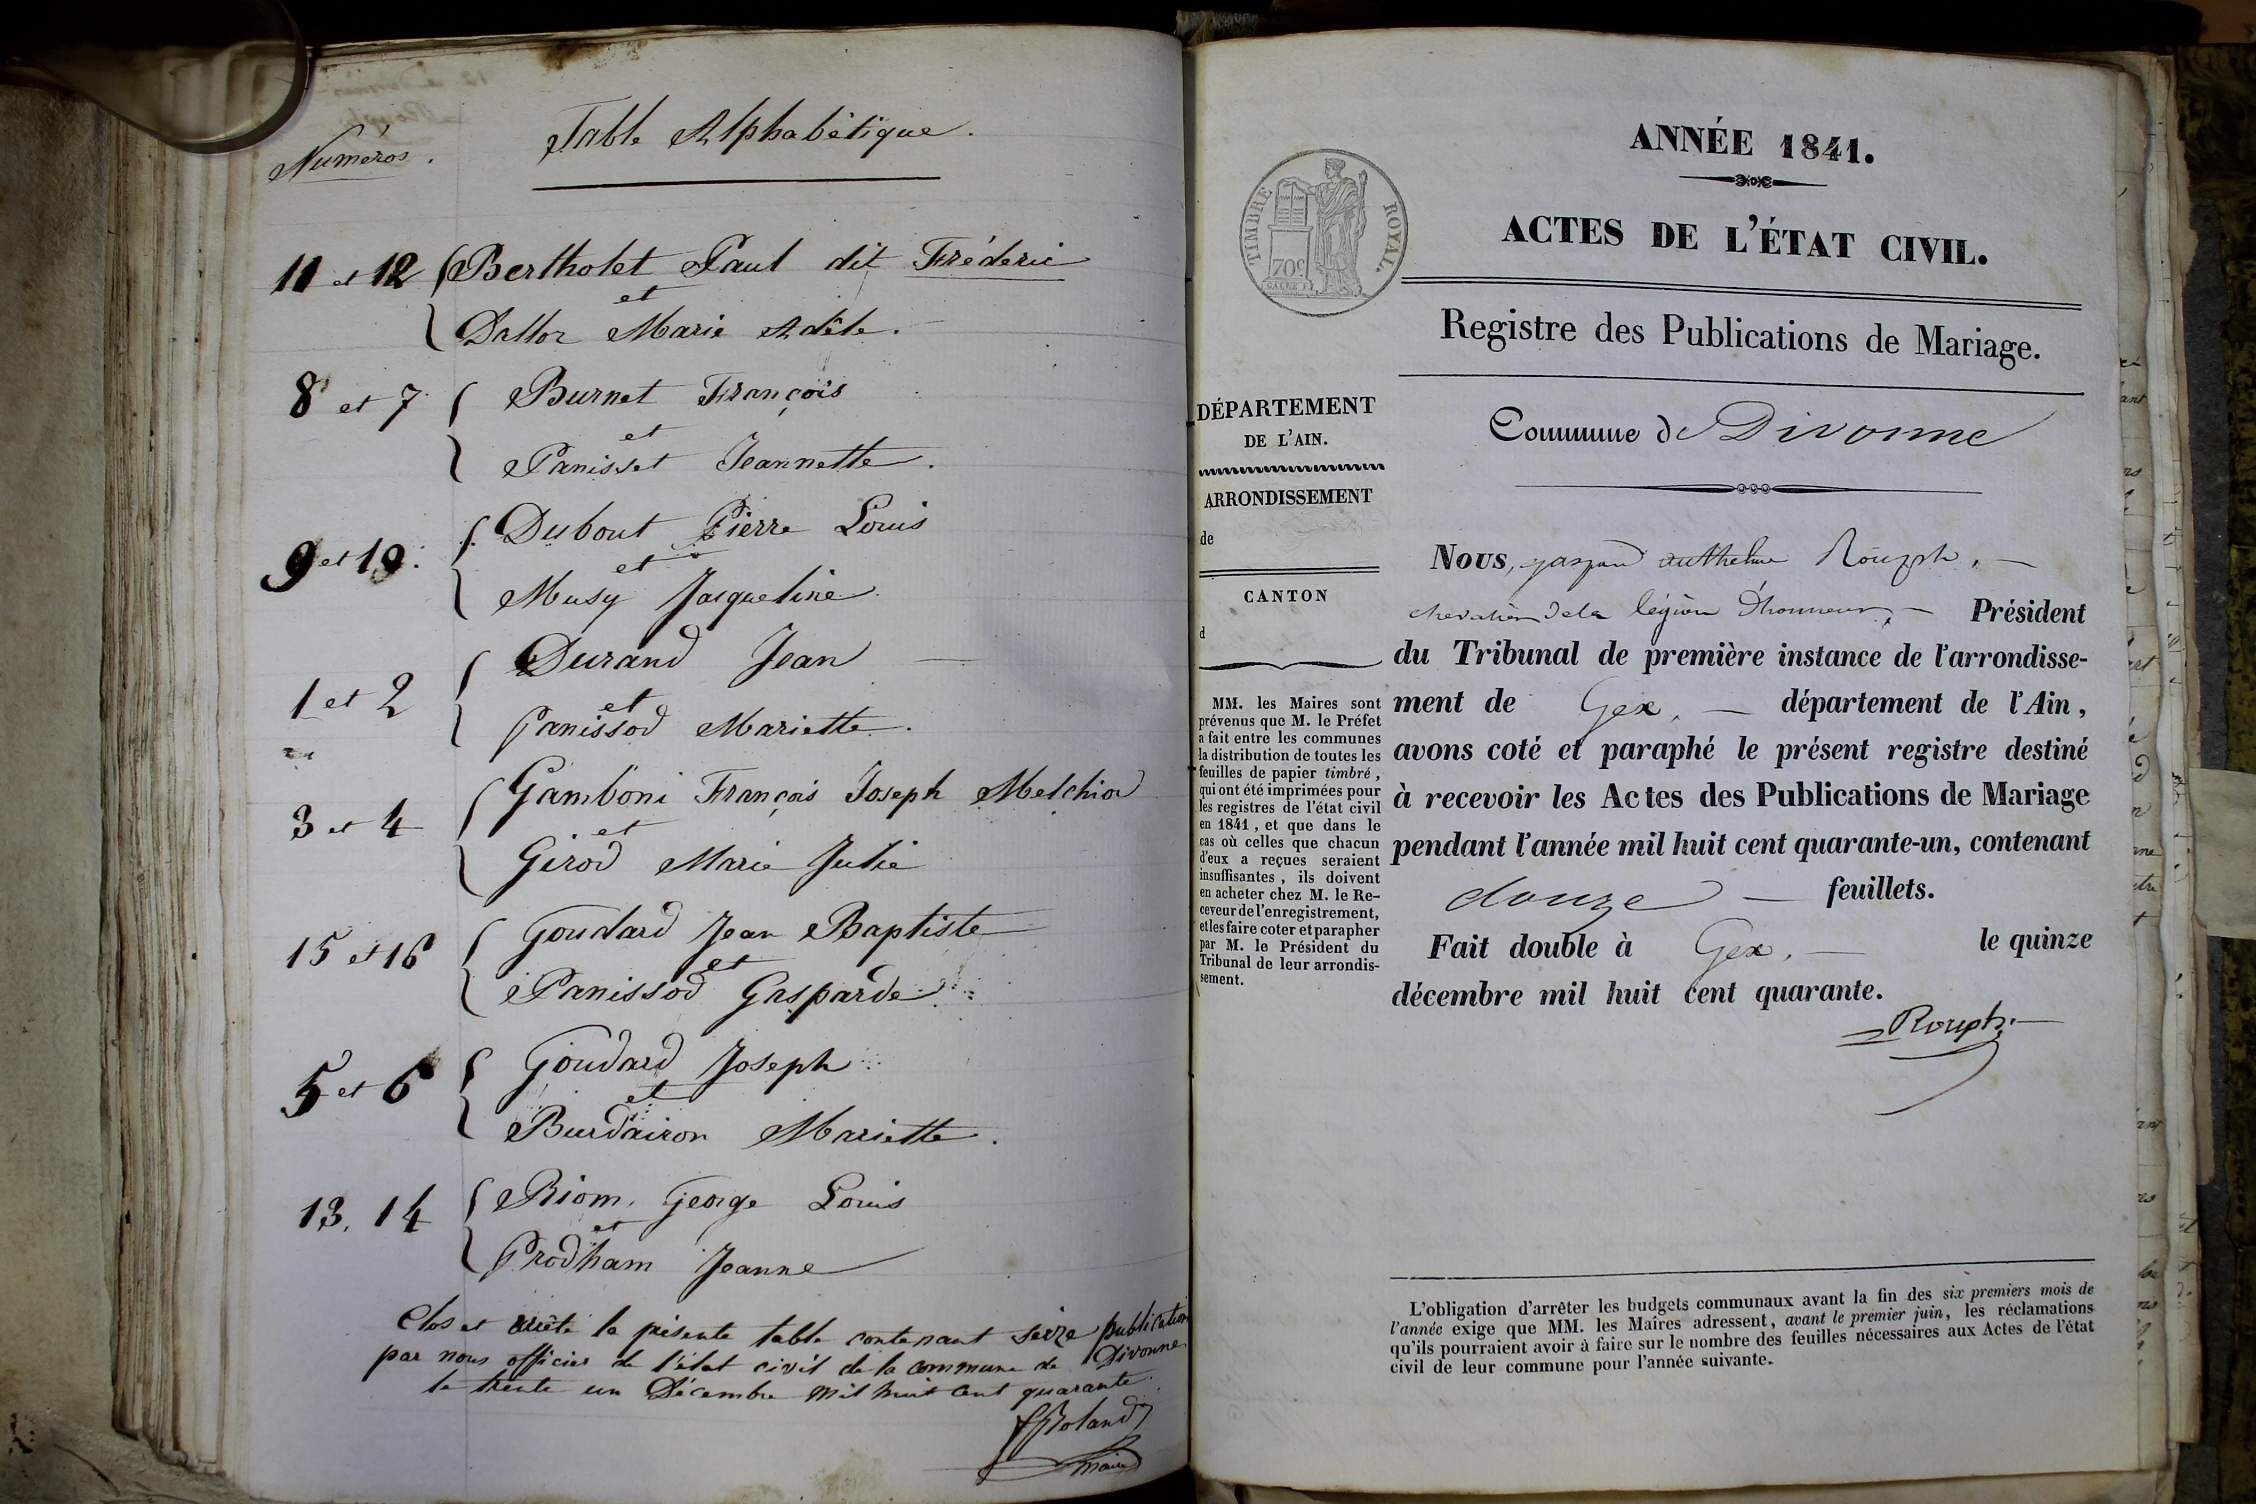 Numéros.
Table Alphabétique.
11 et 12 Bertholet Paul dit Fréderic
et
Dalloz Marie Adèle.
8 et 7 Burnet François
et
Panisset Jeannette.
9 et 10. Dubout Pierre Louis
et
Musy Jacqueline.
1 et 2 Durand Jean
et
Panissod Mariette.
3 et 4 Gamboni François Joseph Melchior
et
Girod Marie Julie
15 et 16 Goudard Jean Baptiste
et
Panissod Gasparde.
5 et 6 Goudard Joseph
et
Burdairon Mariette.
13, 14 Riom, George Louis
et
Prodham Jeanne
Clos et arrêté la présente table contenant seize publication
par nous officier de l'état civil de la commune de Divonne
le trente un Décembre mil huit cent quarante.
Roland
maire
ANNÉE 1841.
TIMBRE ROYAL.
70c
ACTES DE L'ÉTAT CIVIL.
Registre des Publications de Mariage.
DÉPARTEMENT
DE L'AIN.
ARRONDISSEMENT
de
CANTON
d
MM. les Maires sont
prévenus que M. le Préfet
a fait entre les communes
la distribution de toutes les
feuilles de papier timbré,
qui ont été imprimées pour
les registres de l'état civil
en 1841, et que dans le
cas où celles que chacun
d'eux a reçues seraient
insuffisantes, ils doivent
en acheter chez M. le Re-
ceveur de l'enregistrement,
et les faire coter et parapher
par M. le Président du
Tribunal de leur arrondis-
sement.
Commune de Divonne
Nous, gaspard anthelme Rouph,
chevalier de la légion d'honneur, Président
du Tribunal de première instance de l'arrondisse-
ment de Gex, département de l'Ain,
avons coté et paraphé le présent registre destiné
à recevoir les Actes des Publications de Mariage
pendant l'année mil huit cent quarante-un, contenant
douze feuillets.
Fait double à Gex, le quinze
décembre mil huit cent quarante.
Rouph
L'obligation d'arrêter les budgets communaux avant la fin des six premiers mois de
l'année exige que MM. les Maires adressent, avant le premier juin, les réclamations
qu'ils pourraient avoir à faire sur le nombre des feuilles nécessaires aux Actes de l'état
civil de leur commune pour l'année suivante.